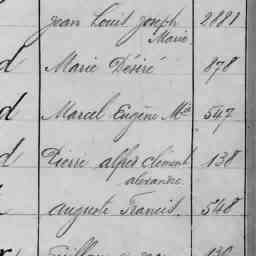 Jean Louis Joseph 2881
Marie
d Marie Désiré 878
d Marcel Eugène Mie 547
d Pierre alfred Clément 138
alexandre
auguste Francis. 548
130